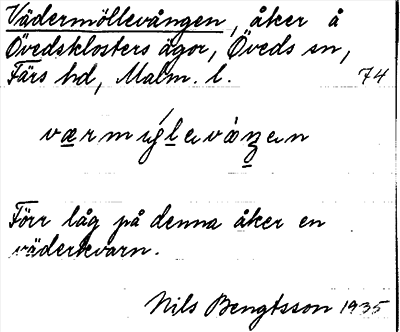 Vädermöllevången, åker å
Övedsklosters ägor, Öveds sn,
Färs hd, Malm. l. 74
Förr låg på denna åker en
väderkvarn.
Nils Bengtsson 1935